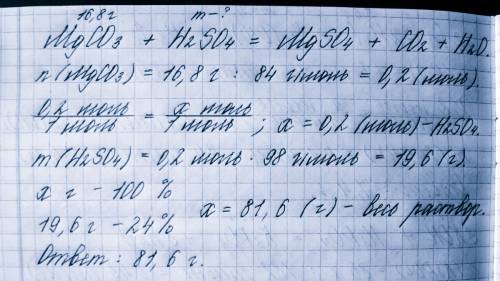 16,8 г m-?
MgCO3 + H2SO4 = MgSO4 + CO2 + H2O.
n(MgCO3) = 16,8 г : 84 г/моль = 0,2 (моль).
0,2 моль / 1 моль = x моль / 1 моль ; x = 0,2 (моль) - H2SO4.
m(H2SO4) = 0,2 моль · 98 г/моль = 19,6 (г).
x г - 100 %
19,6 г - 24 % x = 81,6 (г) - весь раствор.
Ответ : 81,6 г.